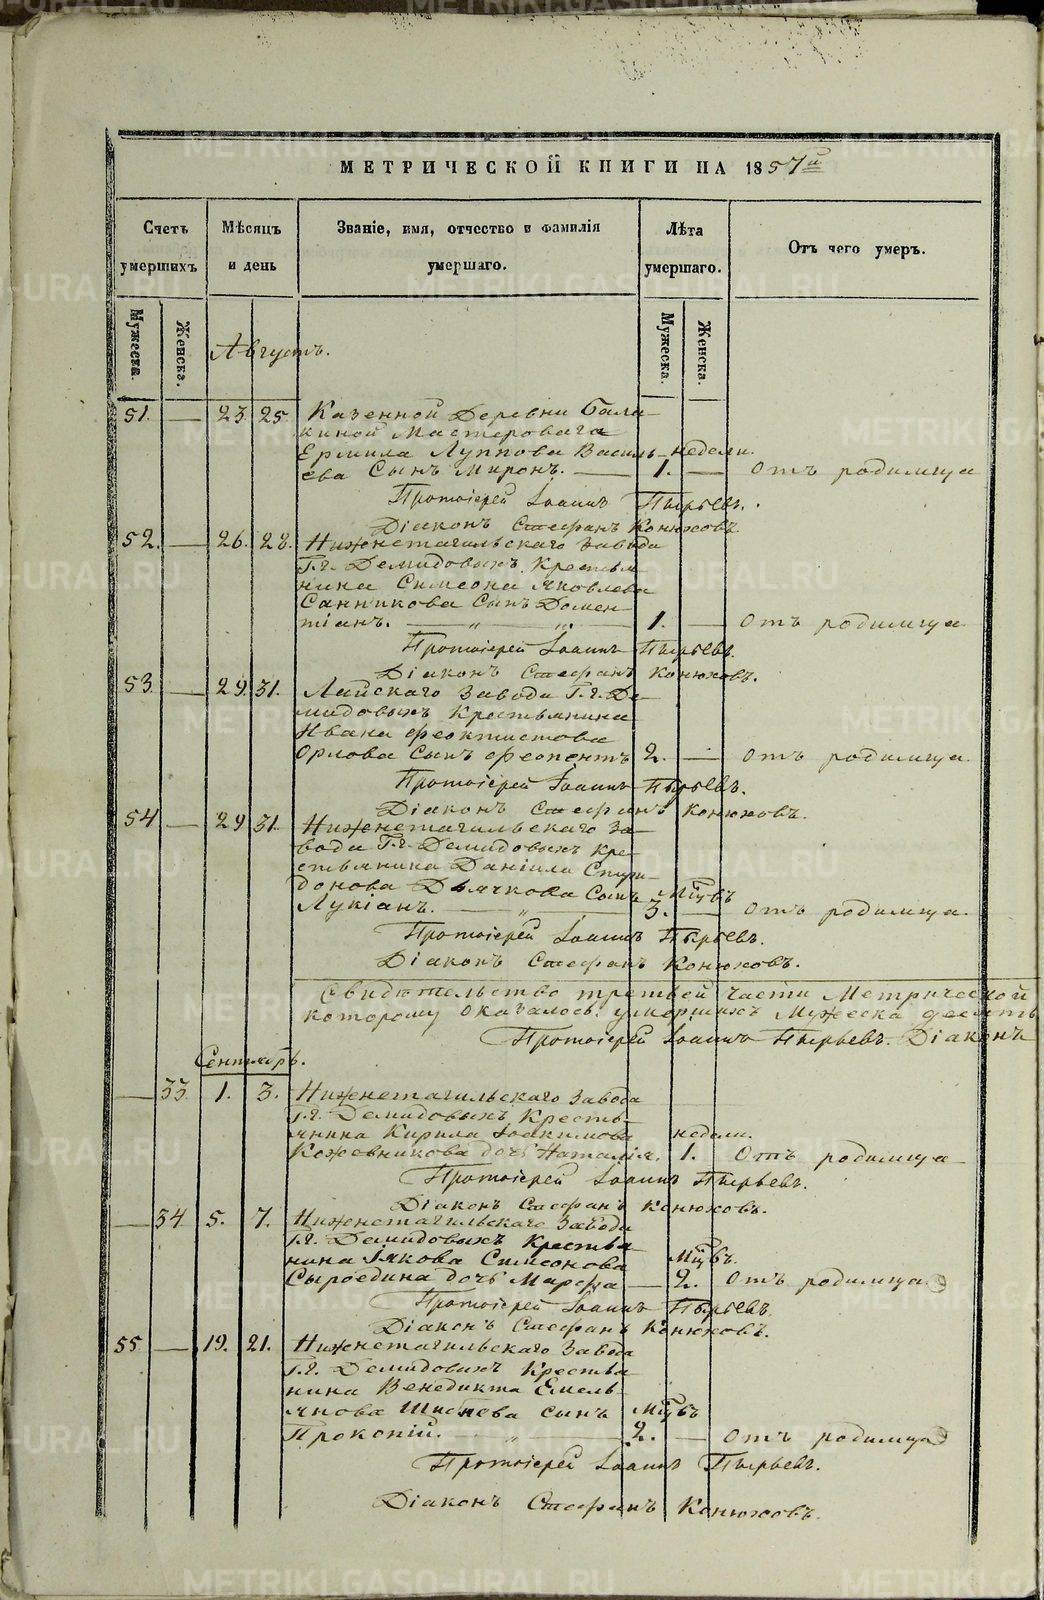 МЕТРИЧЕСКОЙ КНИГИ НА 1857й
Счетъ умершихъ
Мѣсяцъ и день
Званіе, имя, отчество и фамилія умершаго.
Лѣта умершаго.
Отъ чего умеръ.
Мужеска.
Женска.
Мужеска.
Женска.
Августъ.
51. — 23. 25. Казенной Деревни Бала-
киной Мастероваго
Ермила Луппова Василь- недели.
ева Сынъ Миронъ. — 1. — Отъ родимца
Протоіерей Іоаннъ Пырьевъ.
Діаконъ Стефанъ Конюховъ
52. — 26. 28. Нижнетагильскаго Завода
Г.г. Демидовыхъ Крестья-
нина Симеона Яковлева
Санникова Сынъ Домен-
тіанъ. — „ — „ — 1. — Отъ родимца
Протоіерей Іоаннъ Пырьевъ.
Діаконъ Стефанъ Конюховъ.
53 — 29. 31. Лайскаго Завода Г.г. Де-
мидовыхъ Крестьянина
Ивана Феоктистова
Орлова Сынъ Феопентъ 2. — Отъ родимца
Протоіерей Іоаннъ Пырьевъ.
Діаконъ Стефанъ Конюховъ.
54 — 29 31. Нижнетагильскаго За-
вода Г.г. Демидовыхъ Кре-
стьянина Даніила Спири-
донова Дьячкова Сынъ Мцвъ
Лукіанъ. — „ — 3. — Отъ родимца.
Протоіерей Іоаннъ Пырьевъ.
Діаконъ Стефанъ Конюховъ.
Свидѣтельство третьей части Метрической
которому оказалось: умершихъ Мужеска десять
Протоіерей Іоаннъ Пырьевъ. Діаконъ
Сентябрь.
— 33. 1. 3. Нижнетагильскаго Завода
Г.г. Демидовыхъ Кресть-
янина Кирила Іоакимова недели.
Кожевникова дочь Наталія. 1. Отъ родимца
Протоіерей Іоаннъ Пырьевъ.
Діаконъ Стефанъ Конюховъ.
— 34. 5. 7. Нижнетагильскаго Завода
Г.г. Демидовыхъ Крестья-
нина Іякова Симеонова Мцвъ.
Сыроедина дочь Марфа — 2. Отъ родимца
Протоіерей Іоаннъ Пырьевъ
Діаконъ Стефанъ Конюховъ.
55 — 19. 21. Нижнетагильскаго Завода
Г.г. Демидовыхъ Крестья-
нина Венедикта Емель-
янова сынъ Мцвъ
Прокопій. — „ — 2. — Отъ родимца
Протоіерей Іоаннъ Пырьевъ.
Діаконъ Стефанъ Конюховъ.
METRIKI.GASO-URAL.RU